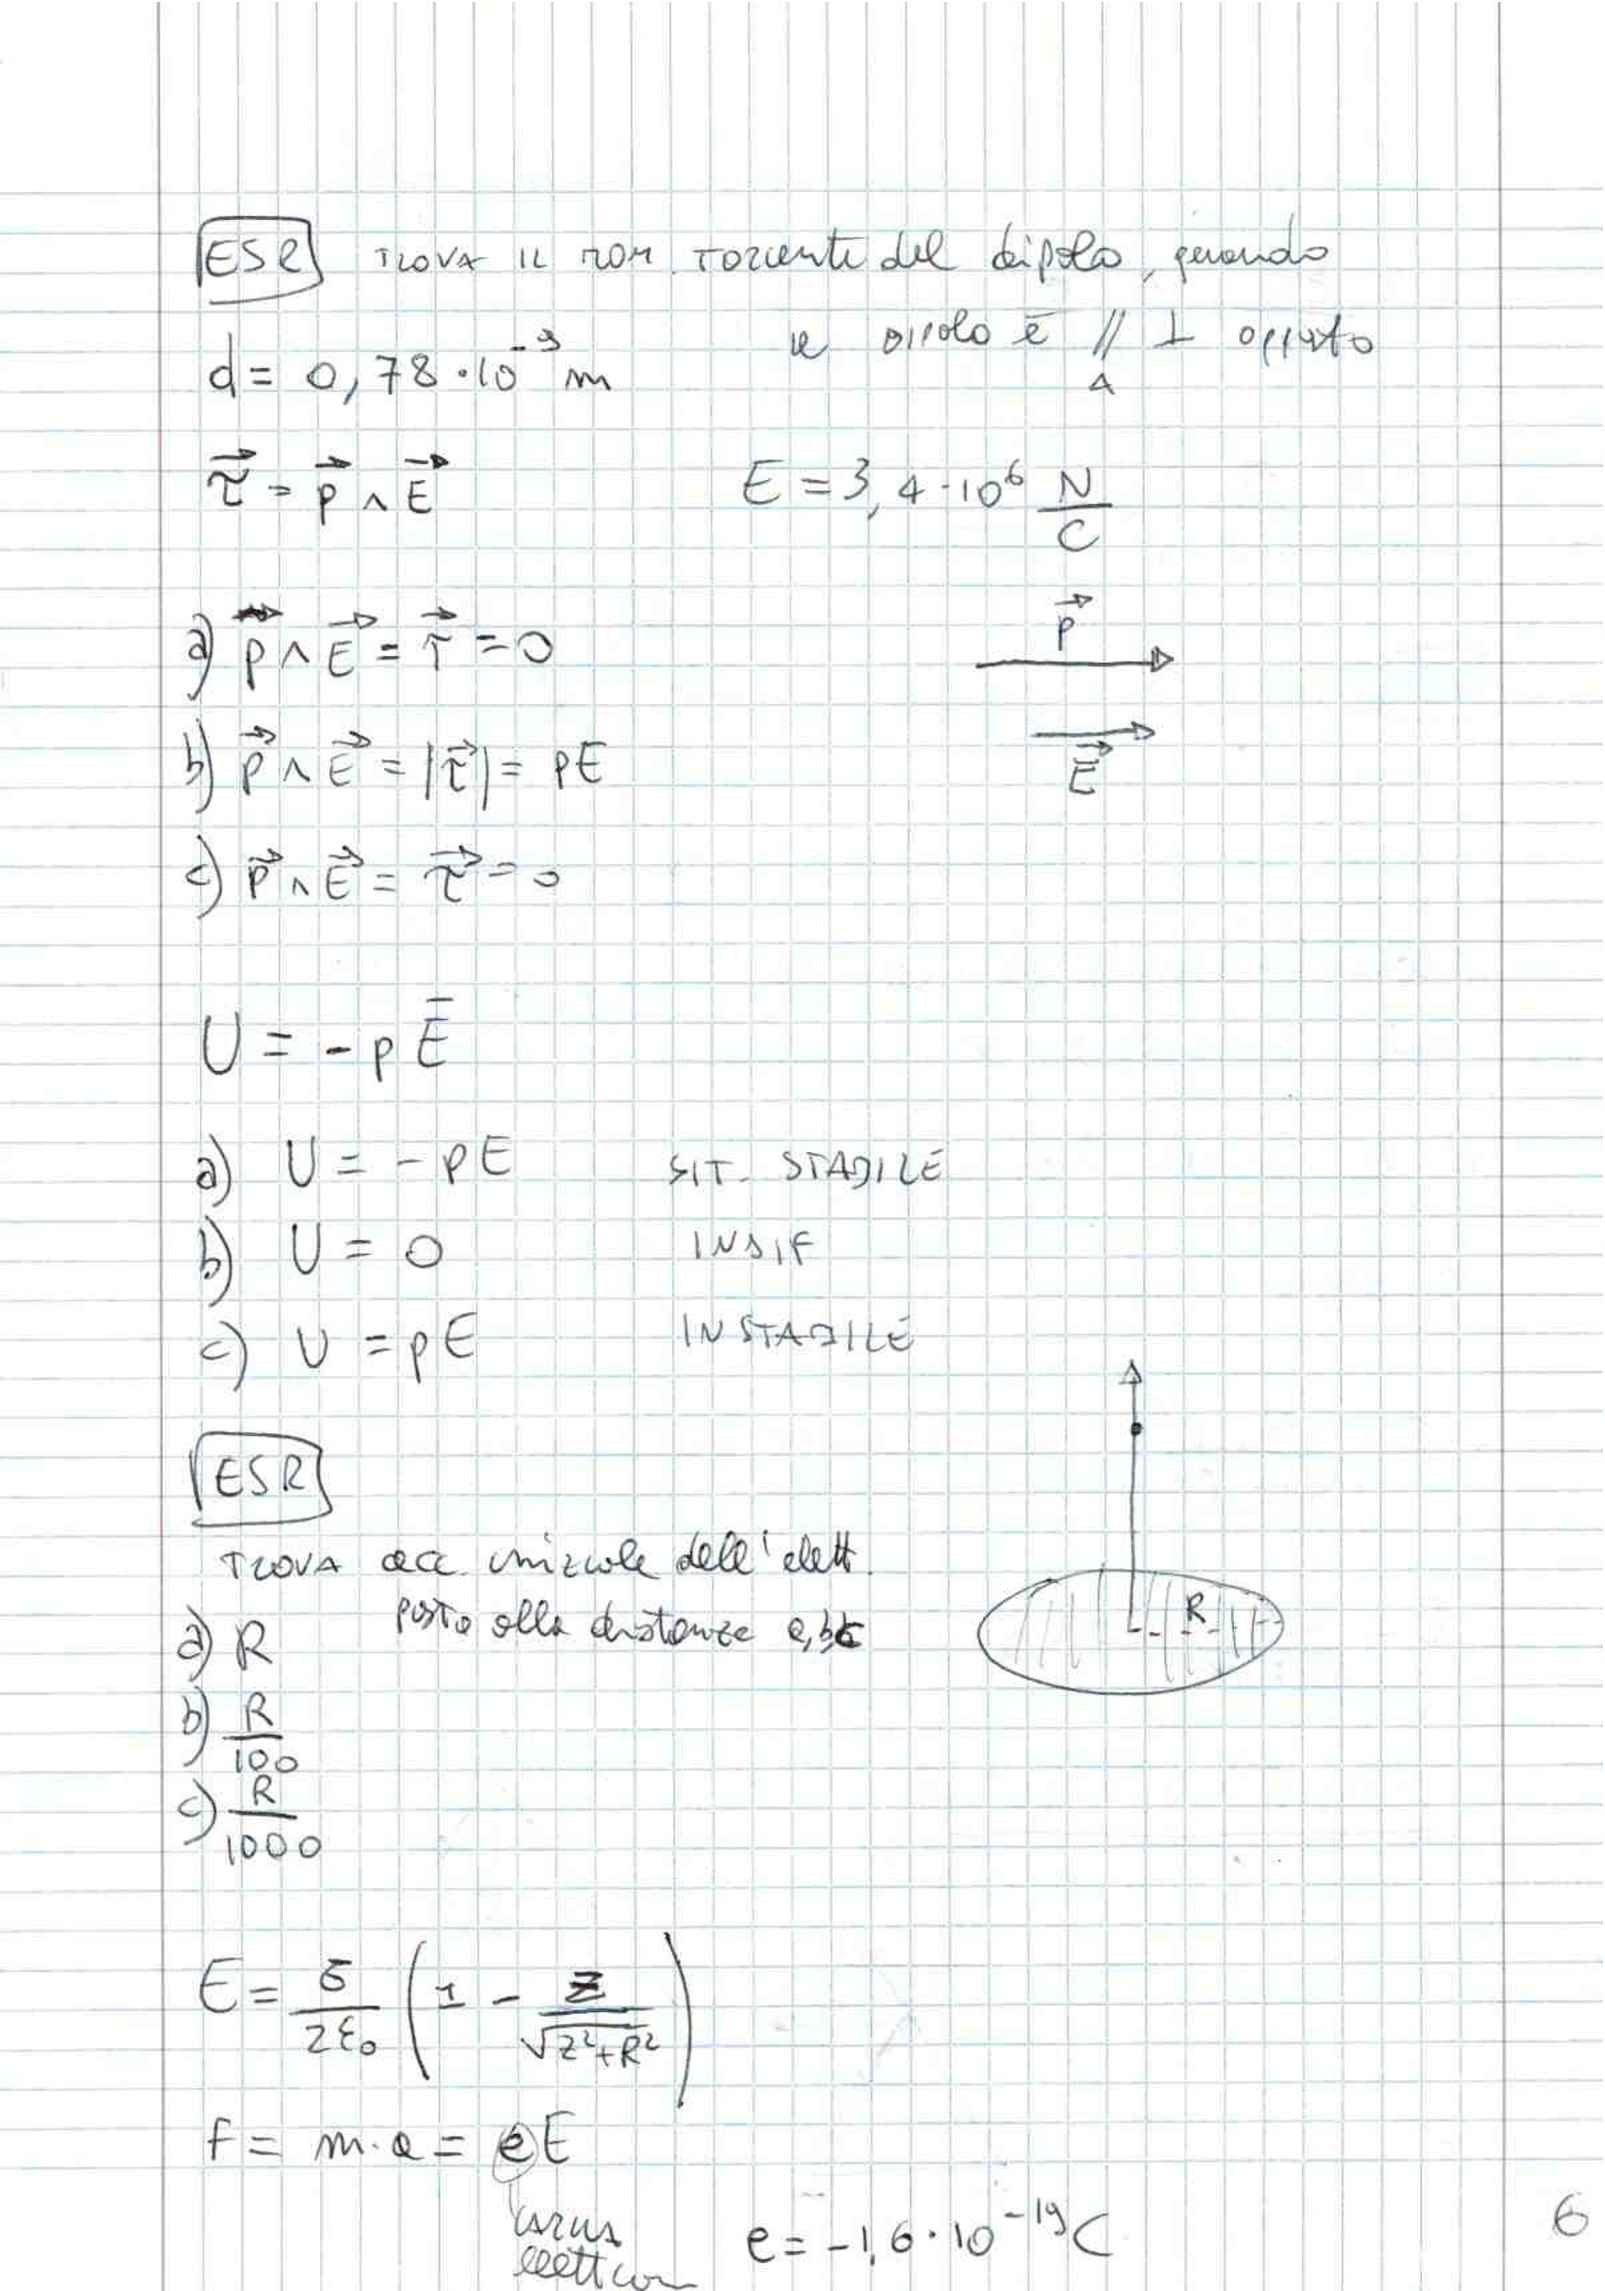 ESR TROVA IL MOM. TORCENTE del dipolo, quando
il DIPOLO È // ⊥ OPPOSTO
A
d = 0,78·10⁻⁹ m
τ⃗ = p⃗ ∧ E⃗ E = 3,4·10⁶ N/C
a) p⃗ ∧ E⃗ = τ⃗ = 0 p⃗
b) p⃗ ∧ E⃗ = |τ⃗| = pE E⃗
c) p⃗ ∧ E⃗ = τ⃗ = 0
U = -p Ē
a) U = -pE SIT. STABILE
b) U = 0 INDIF
c) U = pE INSTABILE
ESR
TROVA acc. iniziale dell'elett.
posto alla distanza a,b,c
R
a) R
b) R/100
c) R/1000
E = σ/2ε₀ (1 - z/√(z²+R²))
F = m·a = eE
CARICA
elettron
e = -1,6·10⁻¹⁹ C
6